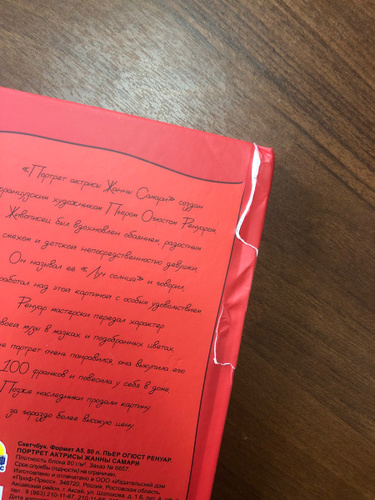 «Портрет актрисы Жанны Самари» создан
французским художником Пьером Огюстом Ренуаром.
Живописец был вдохновлен обаянием, радостным
смехом и детской непосредственностью девушки.
Он называл ее «Луч солнца» и говорил,
работал над этой картиной с особым удовольствием
Ренуар мастерски передал характер
своей музы в мазках и подобранных цветах.
портрет очень понравился, она выкупила его
100 франков и повесила у себя в доме.
Позже наследники продали картину
за гораздо более высокую цену.
Скетчбук. Формат А5, 80 л. ПЬЕР ОГЮСТ РЕНУАР.
ПОРТРЕТ АКТРИСЫ ЖАННЫ САМАРИ
Плотность блока 80 г/м². Заказ № 6657.
Срок службы (годности) не ограничен.
Изготовлено и отпечатано в ООО «Издательский дом
«Проф-Пресс», 346720, Россия, Ростовская область,
Аксайский район, г. Аксай, ул. Шолохова, д. 1 Б